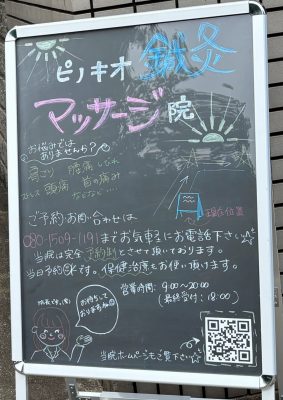 ピノキオ 鍼灸
マッサージ院
お悩みでは
ありませんか?
肩こり 腰痛 しびれ
ストレス 頭痛 首の痛み
などなど....
現在位置
ご予約お問い合わせは
090-1509-1191までお気軽にお電話下さい☆
当院は完全予約制とさせて頂いております。
当日予約OKです。保健治療もお使い頂けます。
営業時間: 9:00~20:00
(最終受付:18:00)
お待ちして
おります
当院ホームページもご覧下さい